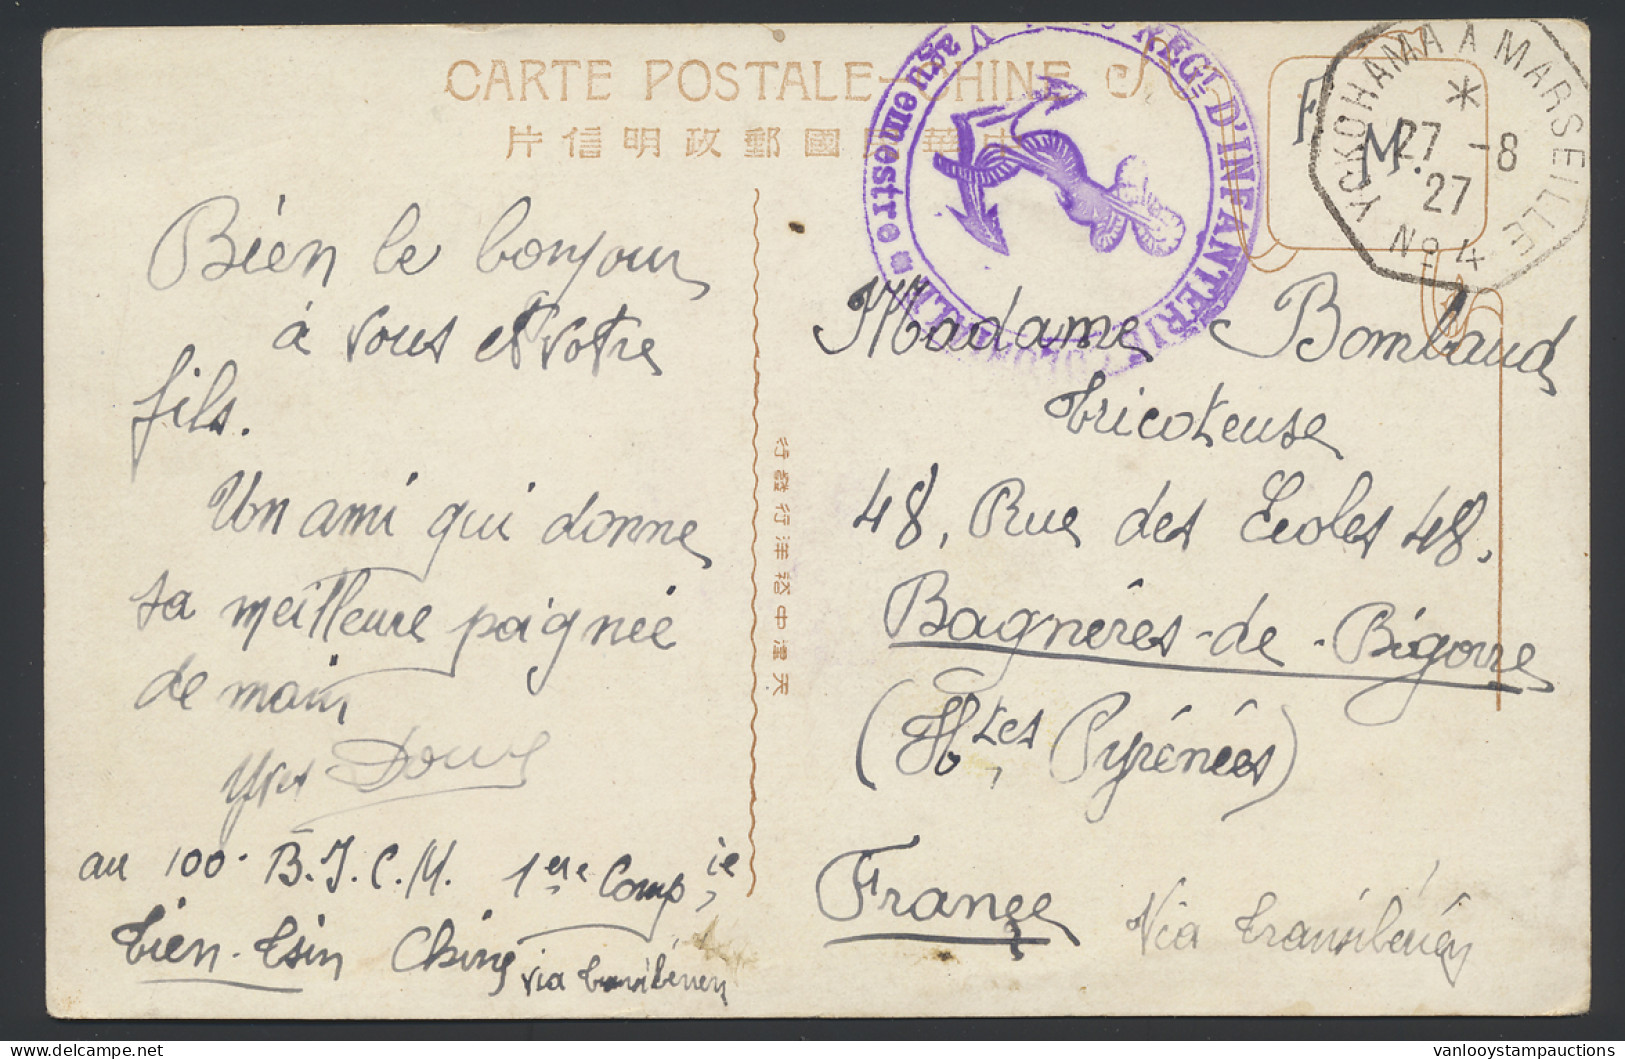 CARTE POSTALE—CHINE
中華民國郵政明信片
Vaguemestre
REGt D'INFANTERIE COLONIALE
YOKOHAMA A MARSEILLE
27 -8
27
No 4
F.
M.
Bien le bonjour
à vous et votre
fils.
Un ami qui donne
sa meilleure poignée
de main
Yves
au 100. B.I.C.M. 1ere Compie,
Tien-Tsin Chine
via transibérien
天津中裕洋行發行
Madame Bombaud
tricoteuse
48, Rue des Ecoles 48.
Bagnéres-de-Bigorre
(Htes, Pyrénées)
France
Via transibérien
vanlooystampauctions